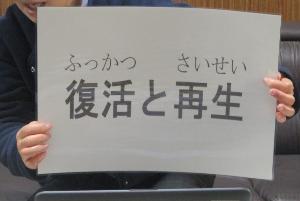 ふっかつ さいせい
復活と再生